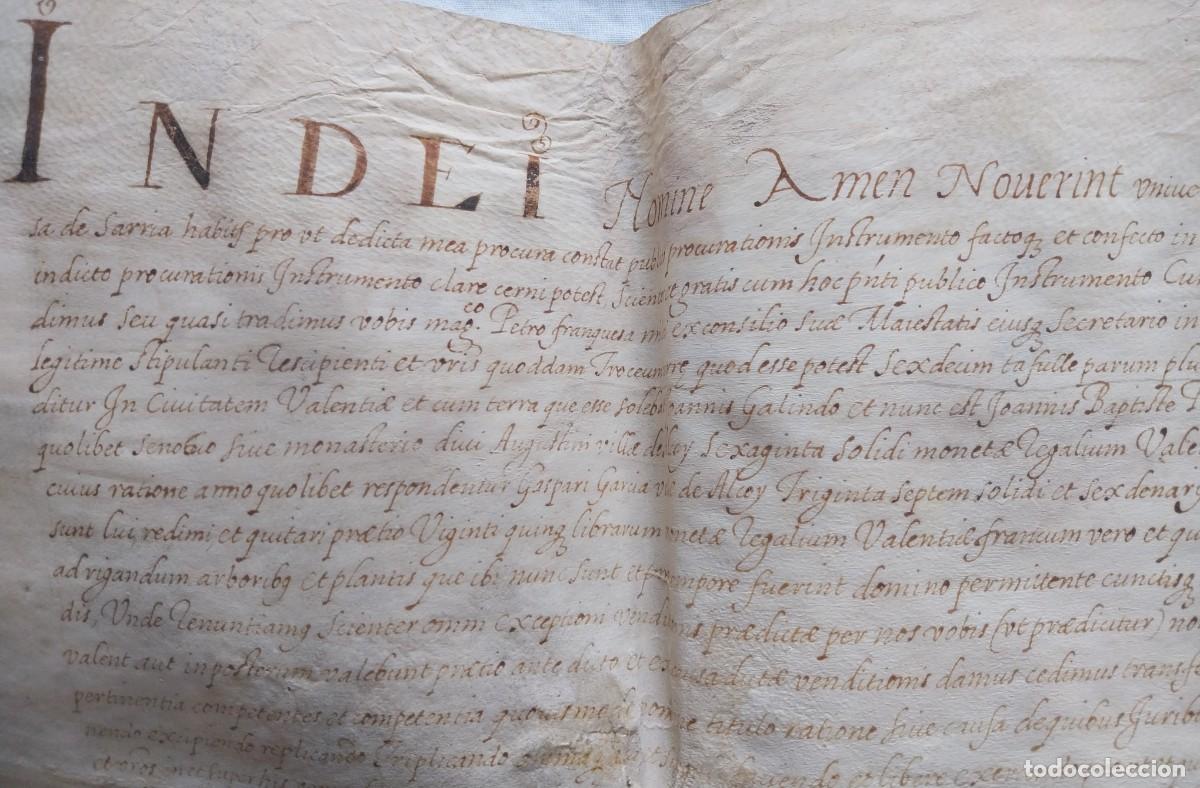 IN DEI Nomine Amen Noverint univer
sa de Sarria habitis pro ut de dicta mea procura constat publico procurationis Instrumento factoq; et confecto in
in dicto procurationis Instrumento clare cerni potest, Scienter et gratis cum hoc pñti publico Instrumento Cu
dimus seu quasi tradimus vobis mag.co Petro franquesa ex consilio suæ Maiestatis eiusq; Secretario in
legitime stipulanti recipienti et vris quoddam Troceum quod esse potest Sexdecim tafulle parum plu
ditur In Civitatem Valentiæ et cum terra que esse Joannis Galindo et nunc est Joannis Baptiste
quolibet sive monasterio divi Augustini villæ de Alcoy Sexaginta solidi monetæ regalium Vale
cuius ratione anno quolibet respondentur Gaspari Garcia de Alcoy Triginta septem solidi et sex denar
sunt lui, redimi, et quitari, prætio Viginti quinq; librarum monetæ regalium Valentiæ francum vero et qu
ad rigandum arboribq et plantis que ibi nunc sunt et pro tempore fuerint domino permittente cunctisq;
dis, Unde renuntiamq Scienter omni exceptioni prædictæ per nos vobis (ut prædicitur) no
valent aut in posterum valebunt præcio ante dicto et ex causa dictæ venditionis damus cedimus transfe
pertinentia competentes et competentia titulo ratione sive causa de quibus Juribq
nendo excipiendo replicando triplicando et libere exer
et vros in et super his
todocoleccion